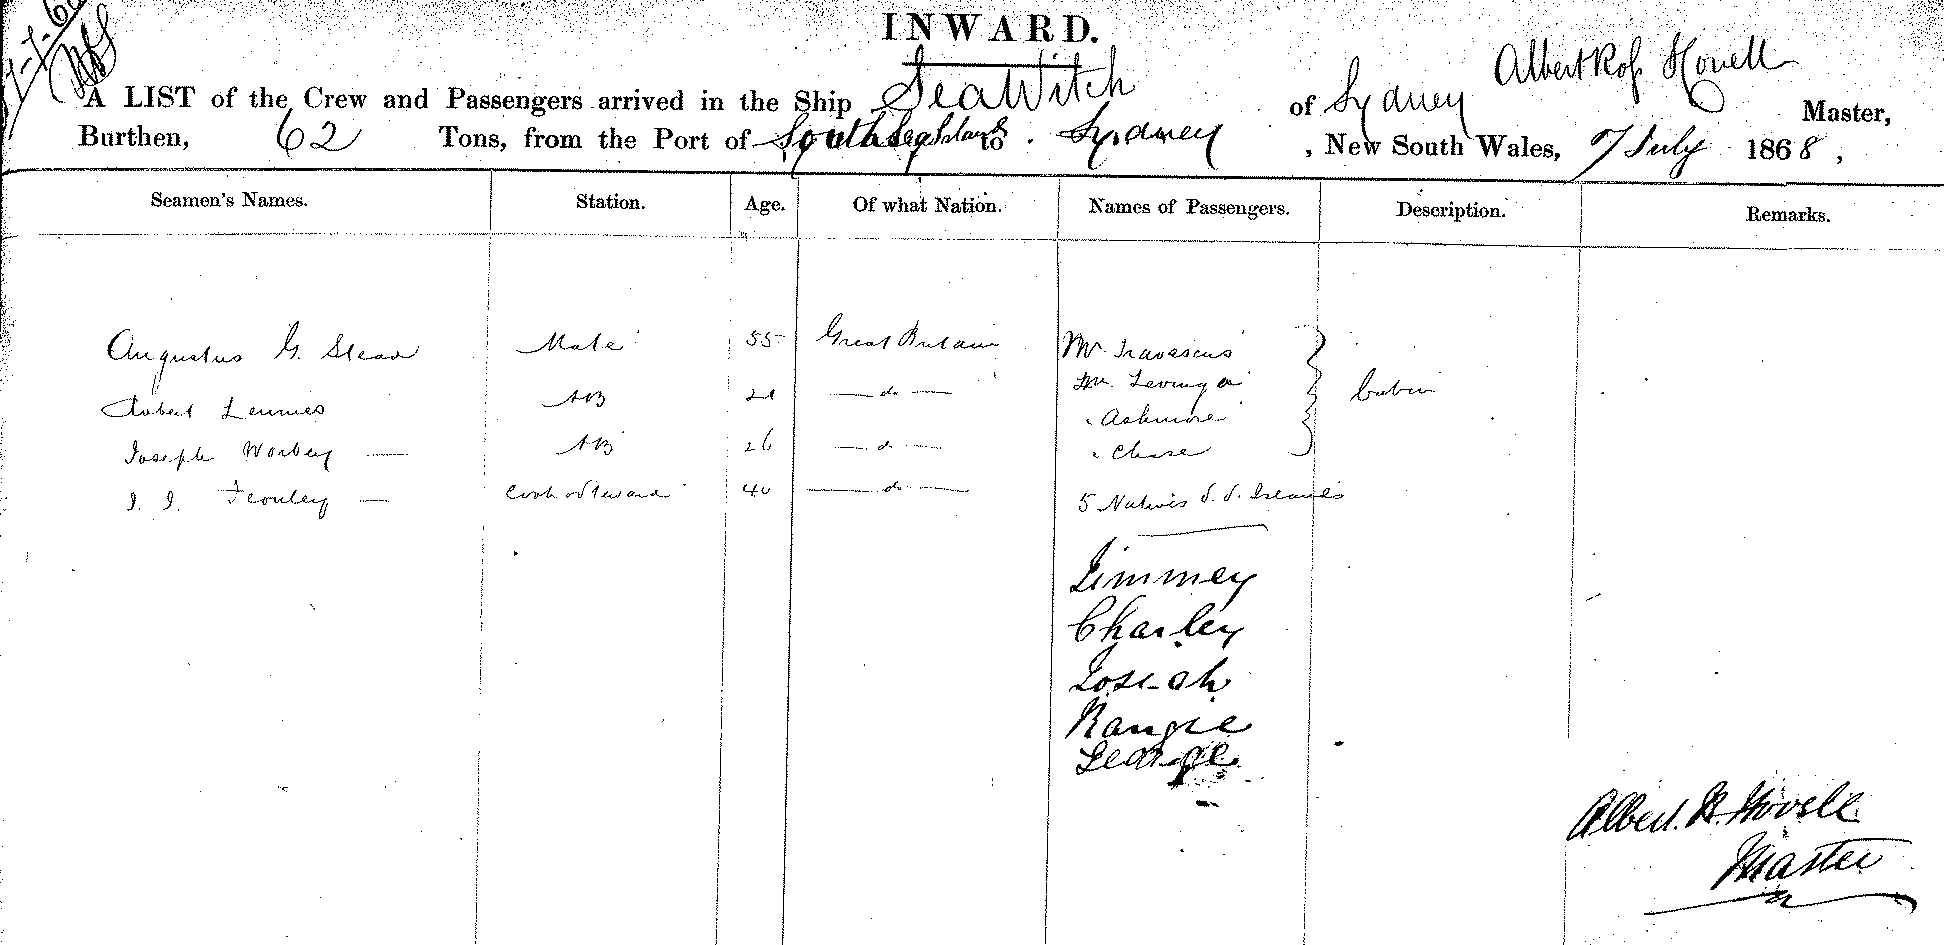 INWARD.
A LIST of the Crew and Passengers arrived in the Ship Sea Witch of Sydney Albert Ross Hovell Master,
Burthen, 62 Tons, from the Port of South Sea Islands to Sydney , New South Wales, 7 July 1868,
Seamen's Names. Station. Age. Of what Nation. Names of Passengers. Description. Remarks.
Augustus G. Mate 55 Great Britain Mr Cabin
Robert AB — do — Mr
Joseph — AB 26 — do — " Ashmore
J. J. — Cook & Steward 40 — do — " Chase
5 Natives S. S. Islands
Jimmey
Charley
Josiah
Rangie
George
Albert. R. Hovell
Master